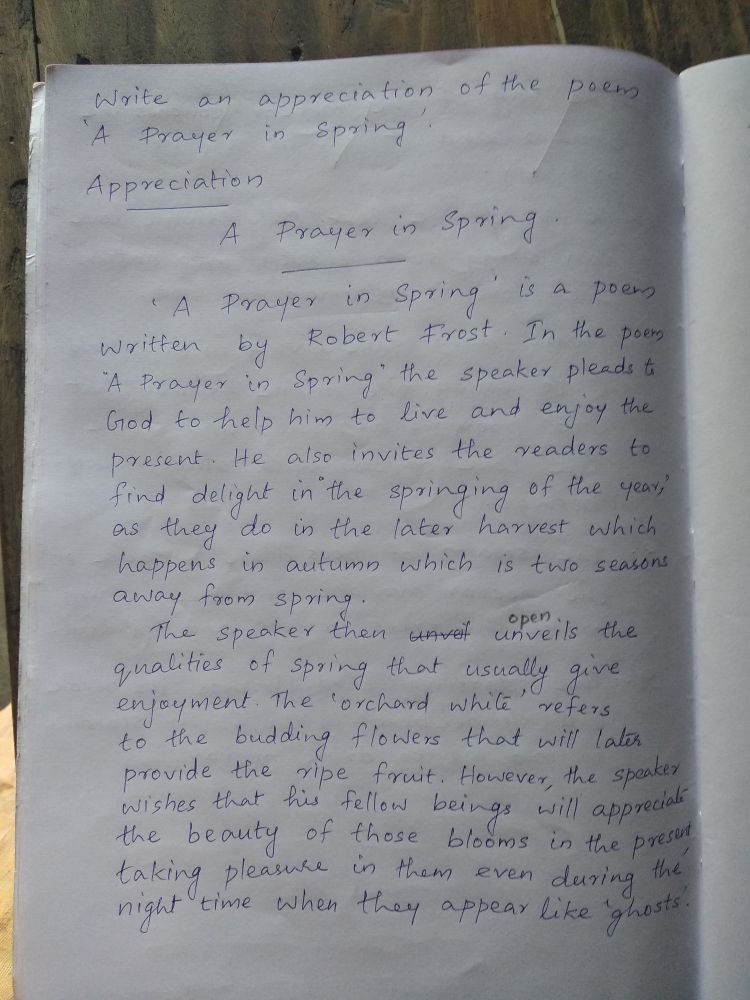 Write an appreciation of the poem
'A Prayer in Spring'.
Appreciation
A Prayer in Spring.
'A Prayer in Spring' is a poem
written by Robert Frost. In the poem
"A Prayer in Spring" the speaker pleads to
God to help him to live and enjoy the
present. He also invites the readers to
find delight in "the springing of the year,"
as they do in the later harvest which
happens in autumn which is two seasons
away from spring.
open
The speaker then unveil unveils the
qualities of spring that usually give
enjoyment. The 'orchard white' refers
to the budding flowers that will later
provide the ripe fruit. However, the speaker
wishes that his fellow beings will appreciate
the beauty of those blooms in the present,
taking pleasure in them even during the
night time when they appear like 'ghosts'.